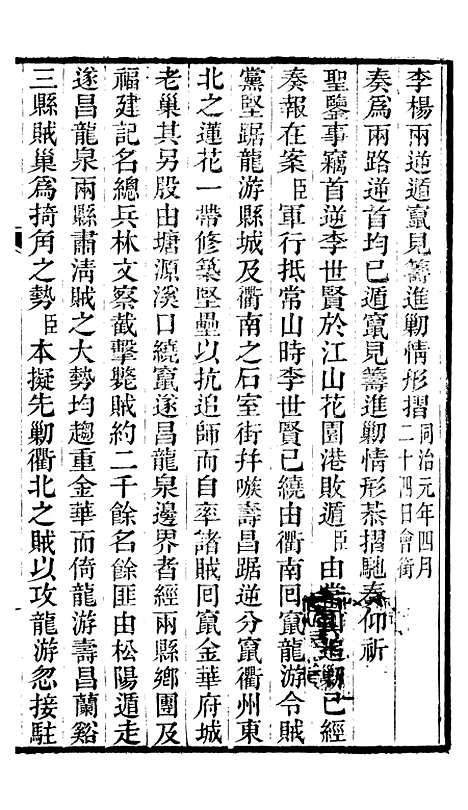 李楊兩逆遁竄見籌進勦情形摺同治元年四月二十四日會銜
奏爲兩路逆首均已遁竄見籌進勦情形恭摺馳奏仰祈
聖鑒事竊首逆李世賢於江山花園港敗遁臣由常山追勦已經
奏報在案臣軍行抵常山時李世賢已繞由衢南回竄龍游令賊
黨堅踞龍游縣城及衢南之石室街幷嗾壽昌踞逆分竄衢州東
北之蓮花一帶修築堅壘以抗追師而自率諸賊回竄金華府城
老巢其另股由塘源溪口繞竄遂昌龍泉邊界者經兩縣鄉團及
福建記名總兵林文察截擊斃賊約二千餘名餘匪由松陽遁走
遂昌龍泉兩縣肅淸賊之大勢均趨重金華而倚龍游壽昌蘭谿
三縣賊巢爲掎角之勢臣本擬先勦衢北之賊以攻龍游忽接駐